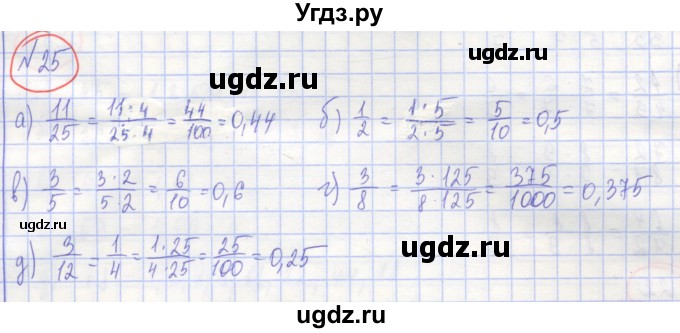 Угдз.ру
№25
ugdz.ru
ugdz.ru
а) 11/25 = 11·4/25·4 = 44/100 = 0,44 б) 1/2 = 1·5/2·5 = 5/10 = 0,5
в) 3/5 = 3·2/5·2 = 6/10 = 0,6 г) 3/8 = 3·125/8·125 = 375/1000 = 0,375
ugdz.ru
ugdz.ru
ugdz.ru
д) 3/12 = 1/4 = 1·25/4·25 = 25/100 = 0,25
ugdz.ru